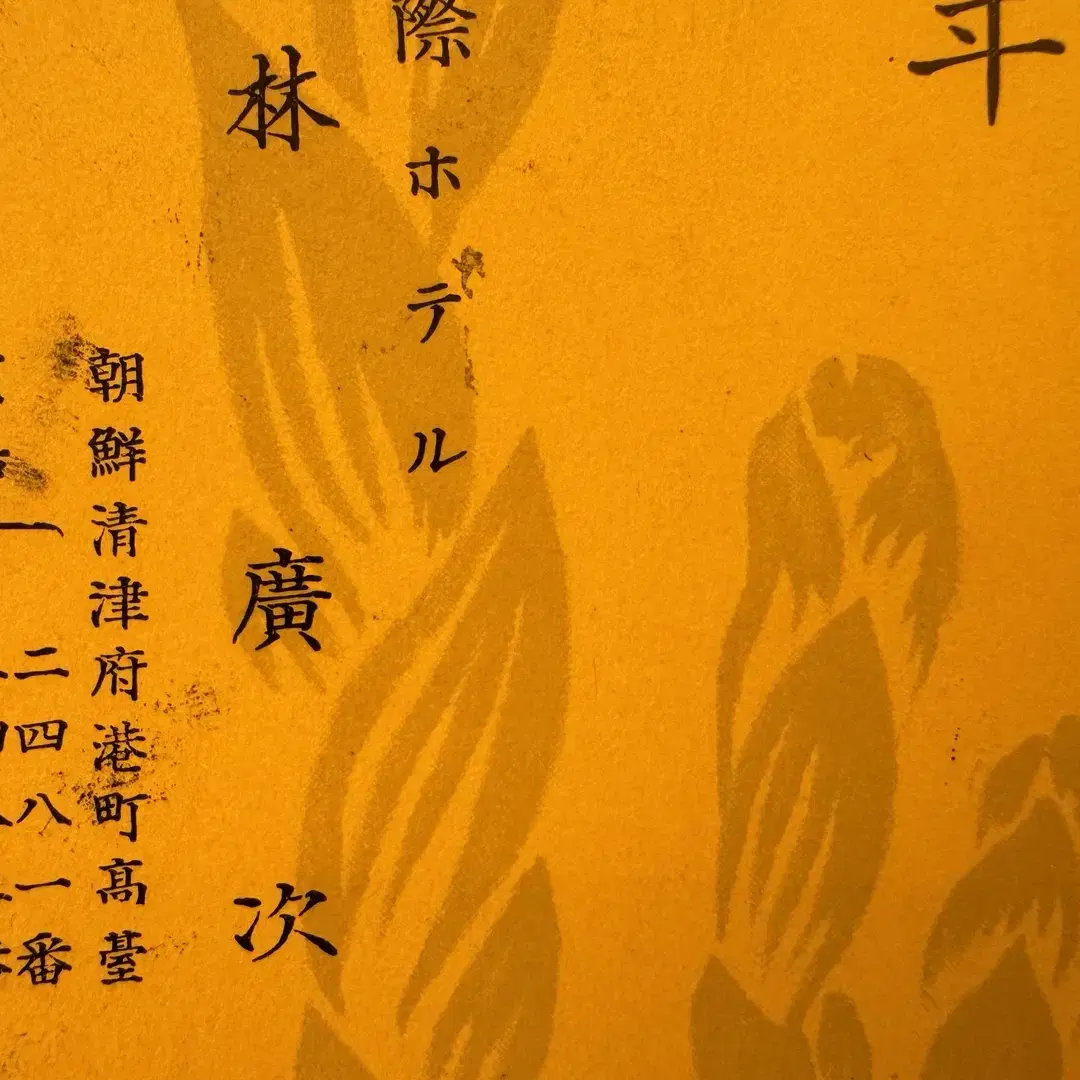 年
際ホテル
林廣次
朝鮮清津府港町高臺
二四八一番